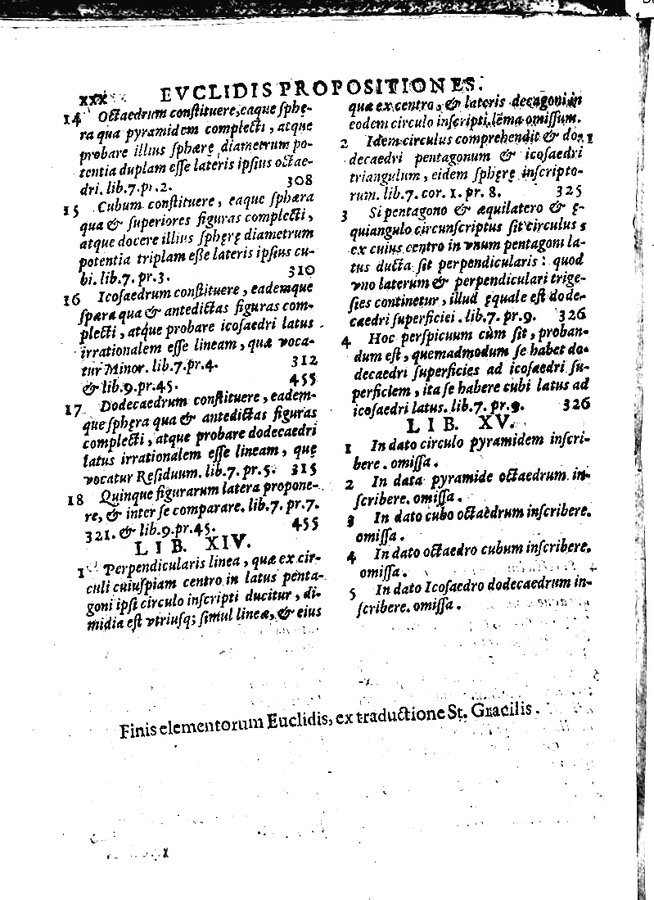 xxx EVCLIDIS PROPOSITIONES.
14 Octaedrum constituere, eaque sphę-
ra qua pyramidem complecti, atque
probare illius sphærę diametrum po-
tentia duplam esse lateris ipsius octae-
dri. lib.7.pr.2. 308
15 Cubum constituere, eaque sphæra
qua & superiores figuras complecti,
atque docere illius sphęrę diametrum
potentia triplam esse lateris ipsius cu-
bi. lib.7.pr.3. 310
16 Icosaedrum constituere, eademque
spæra qua & antedictas figuras com-
plecti, atque probare icosaedri latus
irrationalem esse lineam, quæ voca-
tur Minor. lib.7.pr.4. 312
& lib.9.pr.45. 455
17 Dodecaedrum constituere, eadem-
que sphęra qua & antedictas figuras
complecti, atque probare dodecaedri
latus irrationalem esse lineam, quę
vocatur Residuum. lib.7.pr.5. 315
18 Quinque figurarum latera propone-
re, & inter se comparare. lib.7.pr.7.
321. & lib.9.pr.45. 455
LIB. XIV.
1 Perpendicularis linea, quæ ex cir-
culi cuiuspiam centro in latus penta-
goni ipsi circulo inscripti ducitur, di-
midia est vtriusq; simul lineæ, & eius
quæ ex centro, & lateris decagoni in
eodem circulo inscripti. lēma omissum.
2 Idem circulus comprehendit & do-
decaedri pentagonum & icosaedri
triangulum, eidem sphęrę inscripto-
rum. lib.7. cor. 1. pr. 8. 325
3 Si pentagono & æquilatero & ę-
quiangulo circunscriptus sit circulus,
ex cuius centro in vnum pentagoni la-
tus ducta sit perpendicularis: quod
vno laterum & perpendiculari trige-
sies continetur, illud ęquale est dode-
caedri superficiei. lib.7.pr.9. 326
4 Hoc perspicuum cùm sit, proban-
dum est, quemadmodum se habet do-
decaedri superficies ad icosaedri su-
perficiem, ita se habere cubi latus ad
icosaedri latus. lib.7.pr.9. 326
LIB. XV.
1 In dato circulo pyramidem inscri-
bere. omissa.
2 In data pyramide octaedrum in-
scribere. omissa.
3 In dato cubo octaedrum inscribere.
omissa.
4 In dato octaedro cubum inscribere.
omissa.
5 In dato Icosaedro dodecaedrum in-
scribere. omissa.
Finis elementorum Euclidis, ex traductione St. Gracilis.